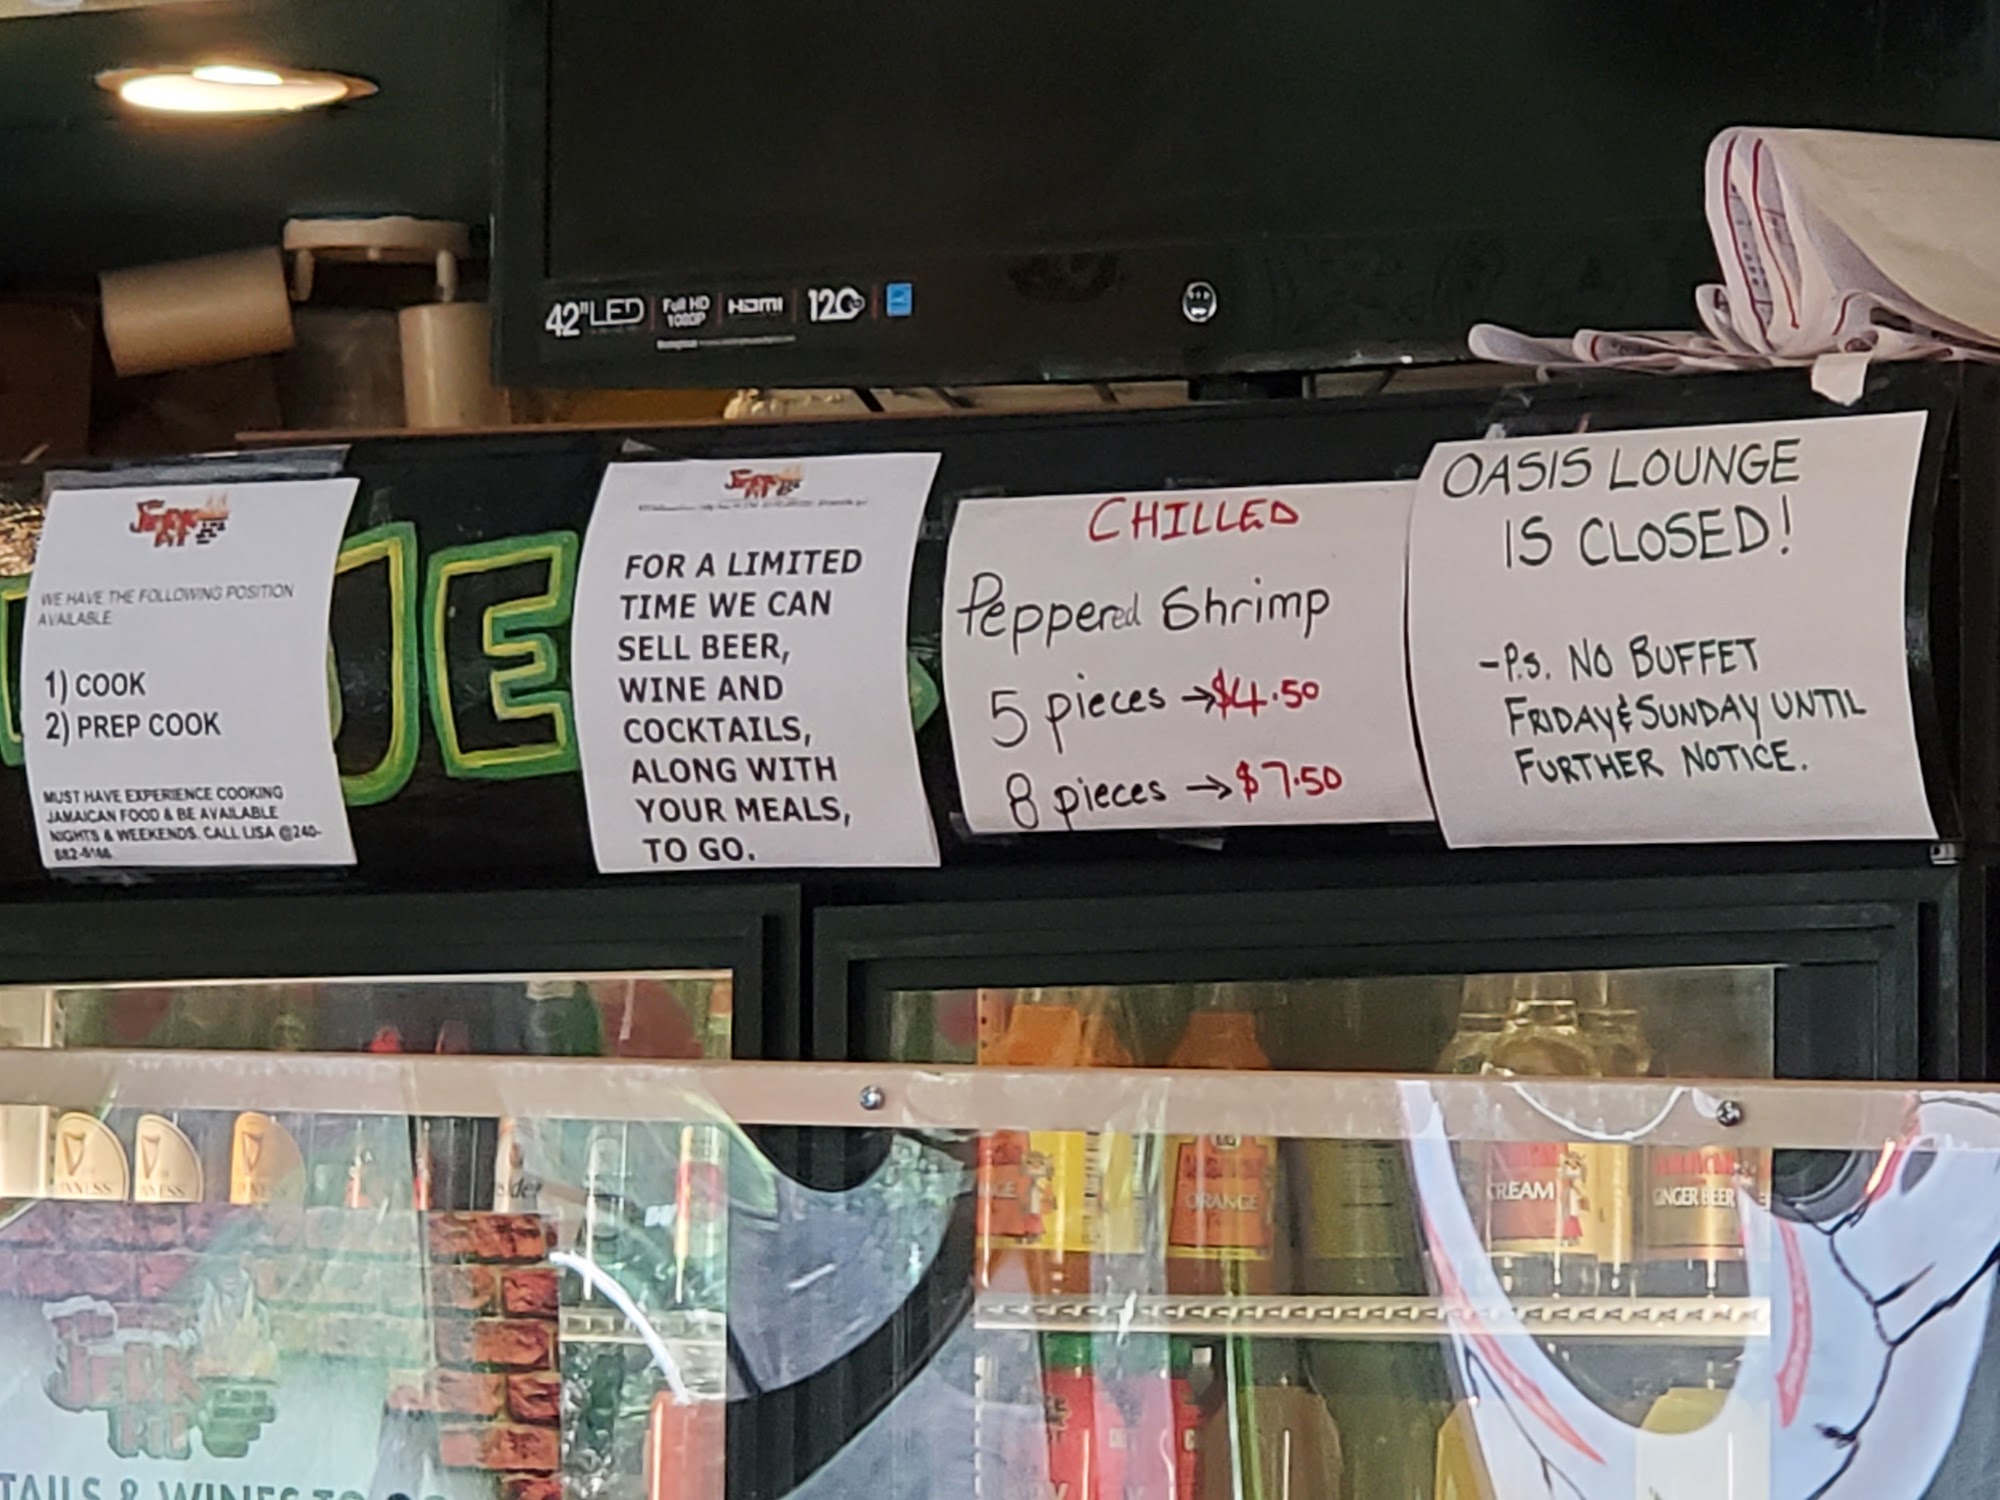 42" LED
Full HD
1080P
HDMI
120
JERK
PIT
WE HAVE THE FOLLOWING POSITION
AVAILABLE
1) COOK
2) PREP COOK
MUST HAVE EXPERIENCE COOKING
JAMAICAN FOOD & BE AVAILABLE
NIGHTS & WEEKENDS. CALL LISA @240-
JE
JERK
PIT
FOR A LIMITED
TIME WE CAN
SELL BEER,
WINE AND
COCKTAILS,
ALONG WITH
YOUR MEALS,
TO GO.
CHILLED
Peppered Shrimp
5 pieces → $4.50
8 pieces → $7.50
OASIS LOUNGE
IS CLOSED!
- P.S. NO BUFFET
FRIDAY & SUNDAY UNTIL
FURTHER NOTICE.
ORANGE
CREAM
GINGER BEER
JERK
PIT
TAILS & WINES TO